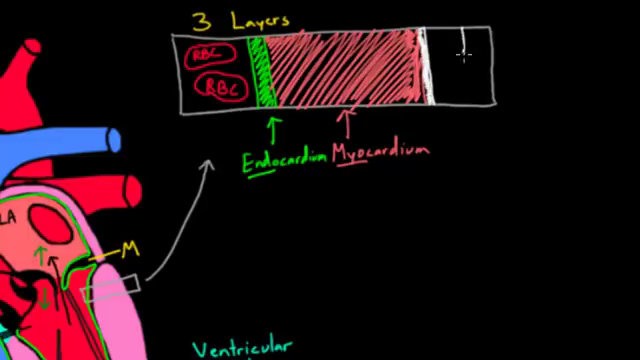 3 Layers
RBC
RBC
Endocardium Myocardium
LA
M
Ventricular